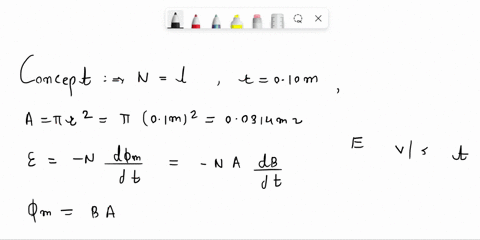 Concept :⇒ N = 1 , r = 0.10m ,
A = πr² = π (0.1m)² = 0.0314m2
ε = -N dϕm/dt = -NA dB/dt
E v/s t
ϕm = BA